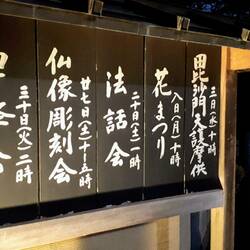 三日(水)十時
毘沙門天護摩供
八日(月)十時
花まつり
二十日(土)一時
法話会
廿七日(土)十-五時
仏像彫刻会
三十日(火)二時